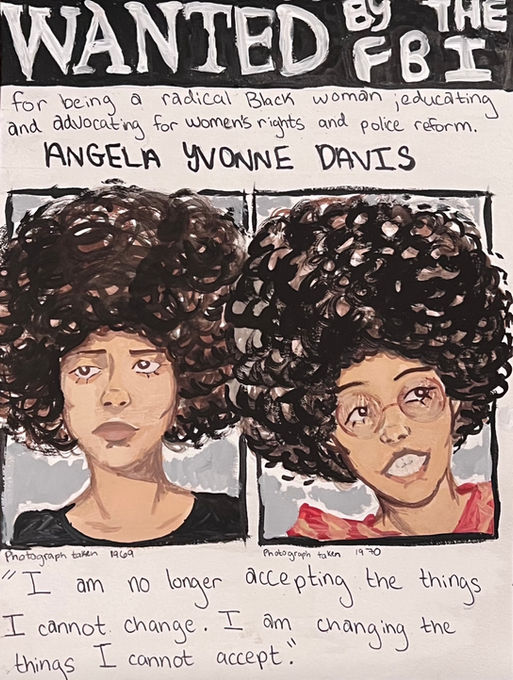 WANTED BY THE FBI
for being a radical Black woman, educating
and advocating for women's rights and police reform.
ANGELA YVONNE DAVIS
Photograph taken 1969
Photograph taken 1970
"I am no longer accepting the things
I cannot change. I am changing the
things I cannot accept."